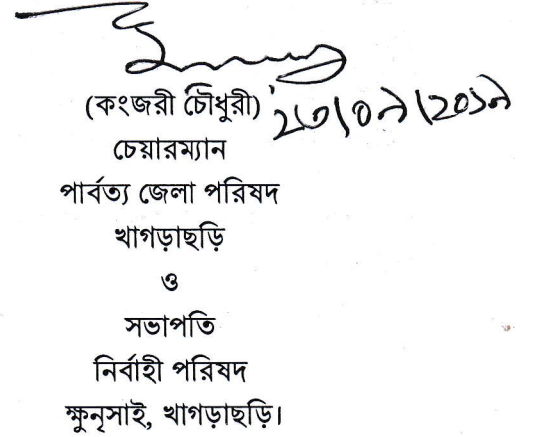 (কংজরী চৌধুরী) ২৩/০৯/২০১৯
চেয়ারম্যান
পার্বত্য জেলা পরিষদ
খাগড়াছড়ি
ও
সভাপতি
নির্বাহী পরিষদ
ক্ষুনৃসাই, খাগড়াছড়ি।